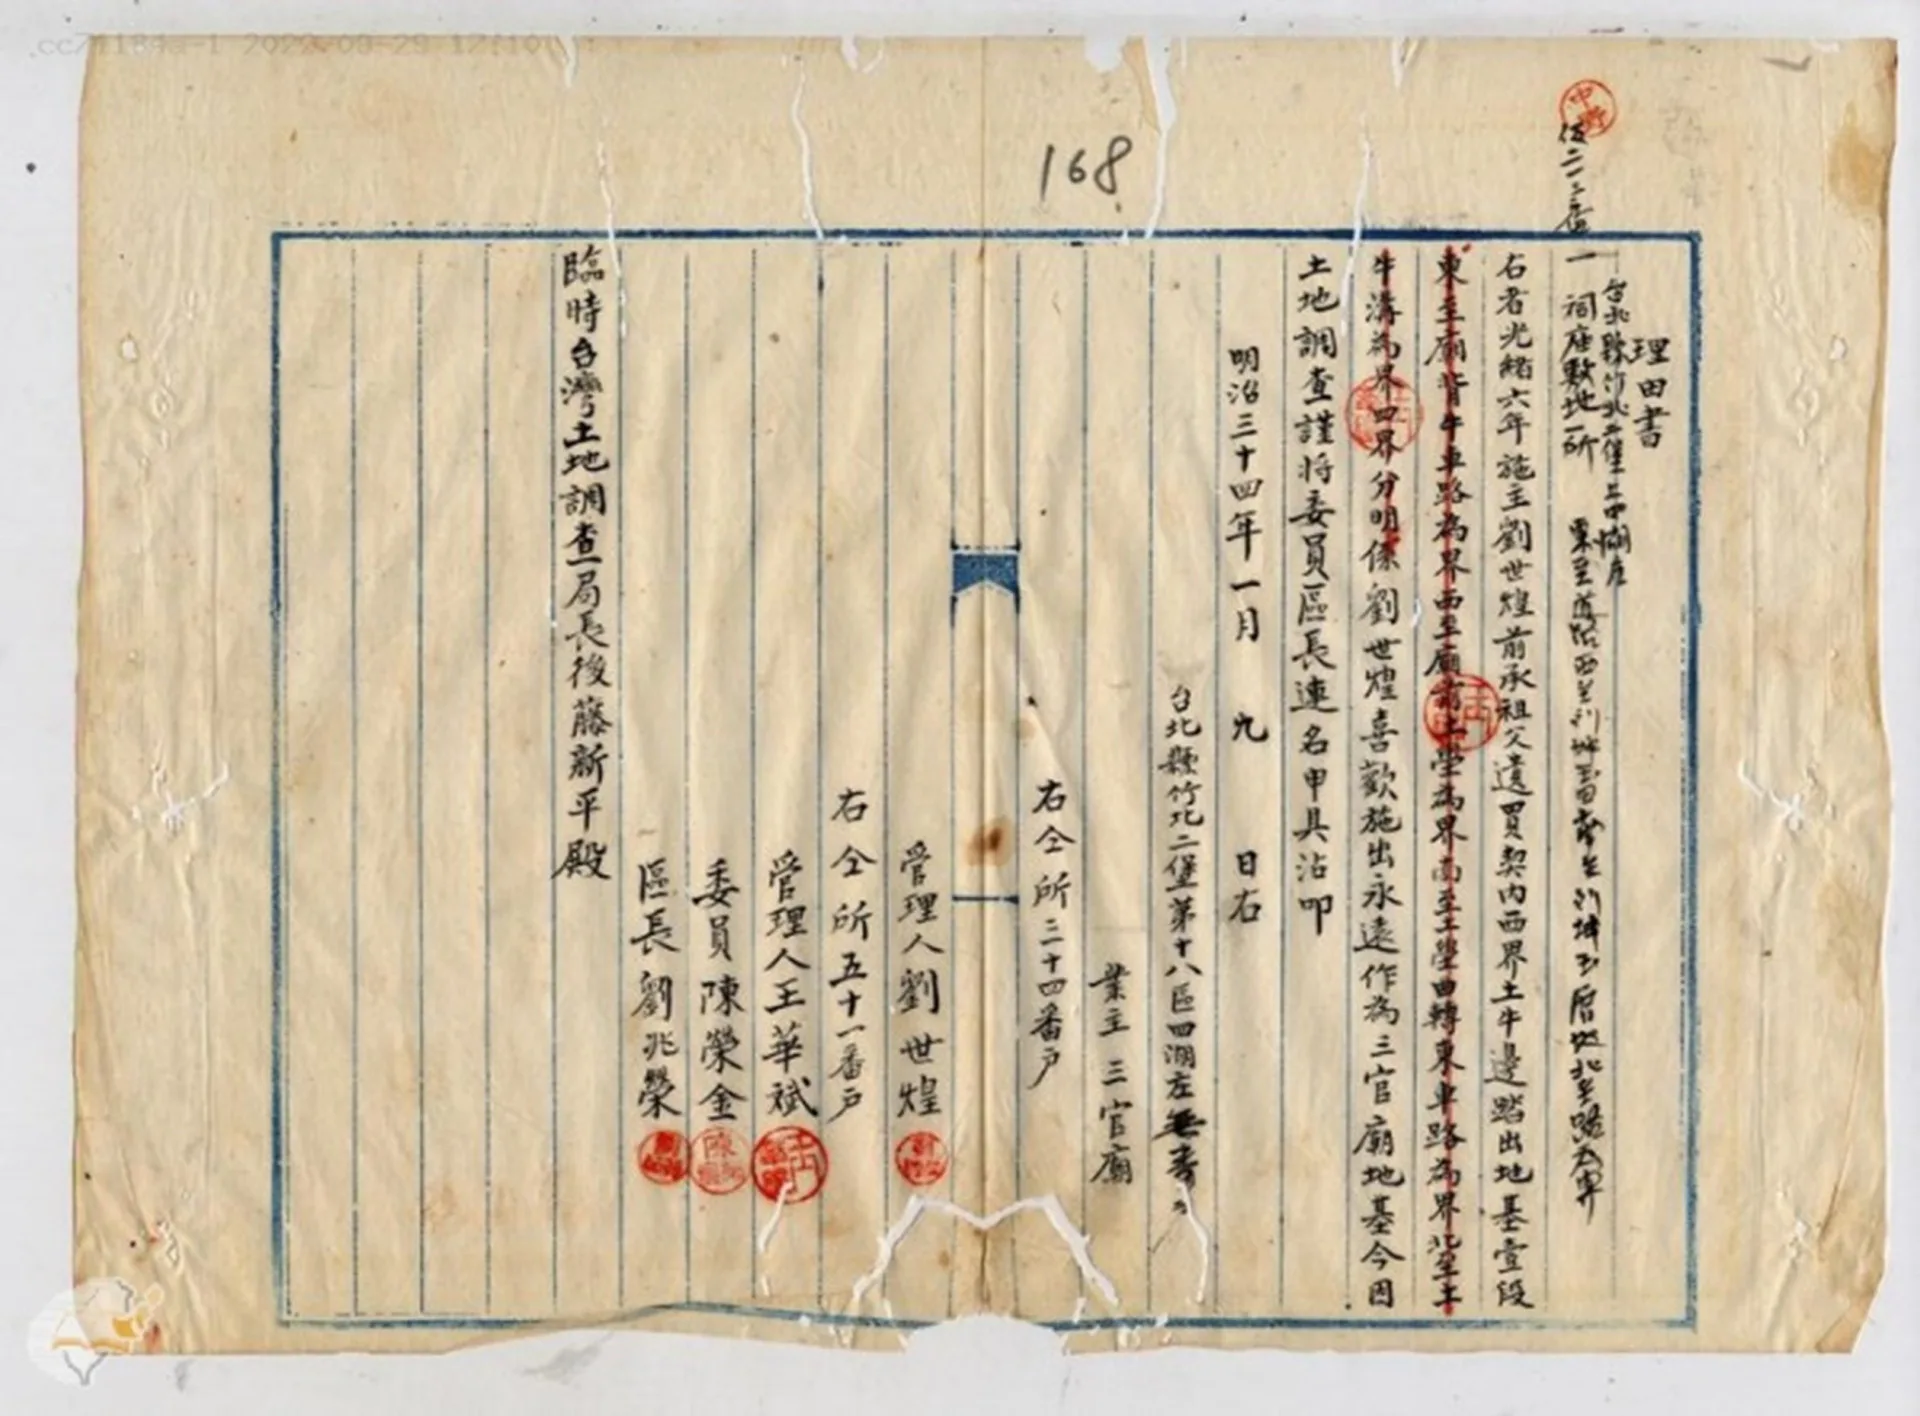 理由書
台北縣竹北二堡上中湖庄
一 祠座敷地一所
右者光緒六年施主劉世煌前承祖父遺買契內西界土牛邊踏出地基壹段
東至廟背牛車路為界西至廟前土壆為界南至土壆曲轉東車路為界北至土
牛溝為界四界分明係劉世煌喜歡施出永遠作為三官廟地基今因
土地調查謹將委員區長連名申具沾叩
明治三十四年一月 九 日右
台北縣竹北二堡第十八區四湖庄無番戶
業主 三官廟
右仝所三十四番戶
管理人劉世煌
右仝所五十一番戶
管理人王華斌
委員陳榮金
區長劉兆榮
臨時台灣土地調查局長後藤新平殿
168